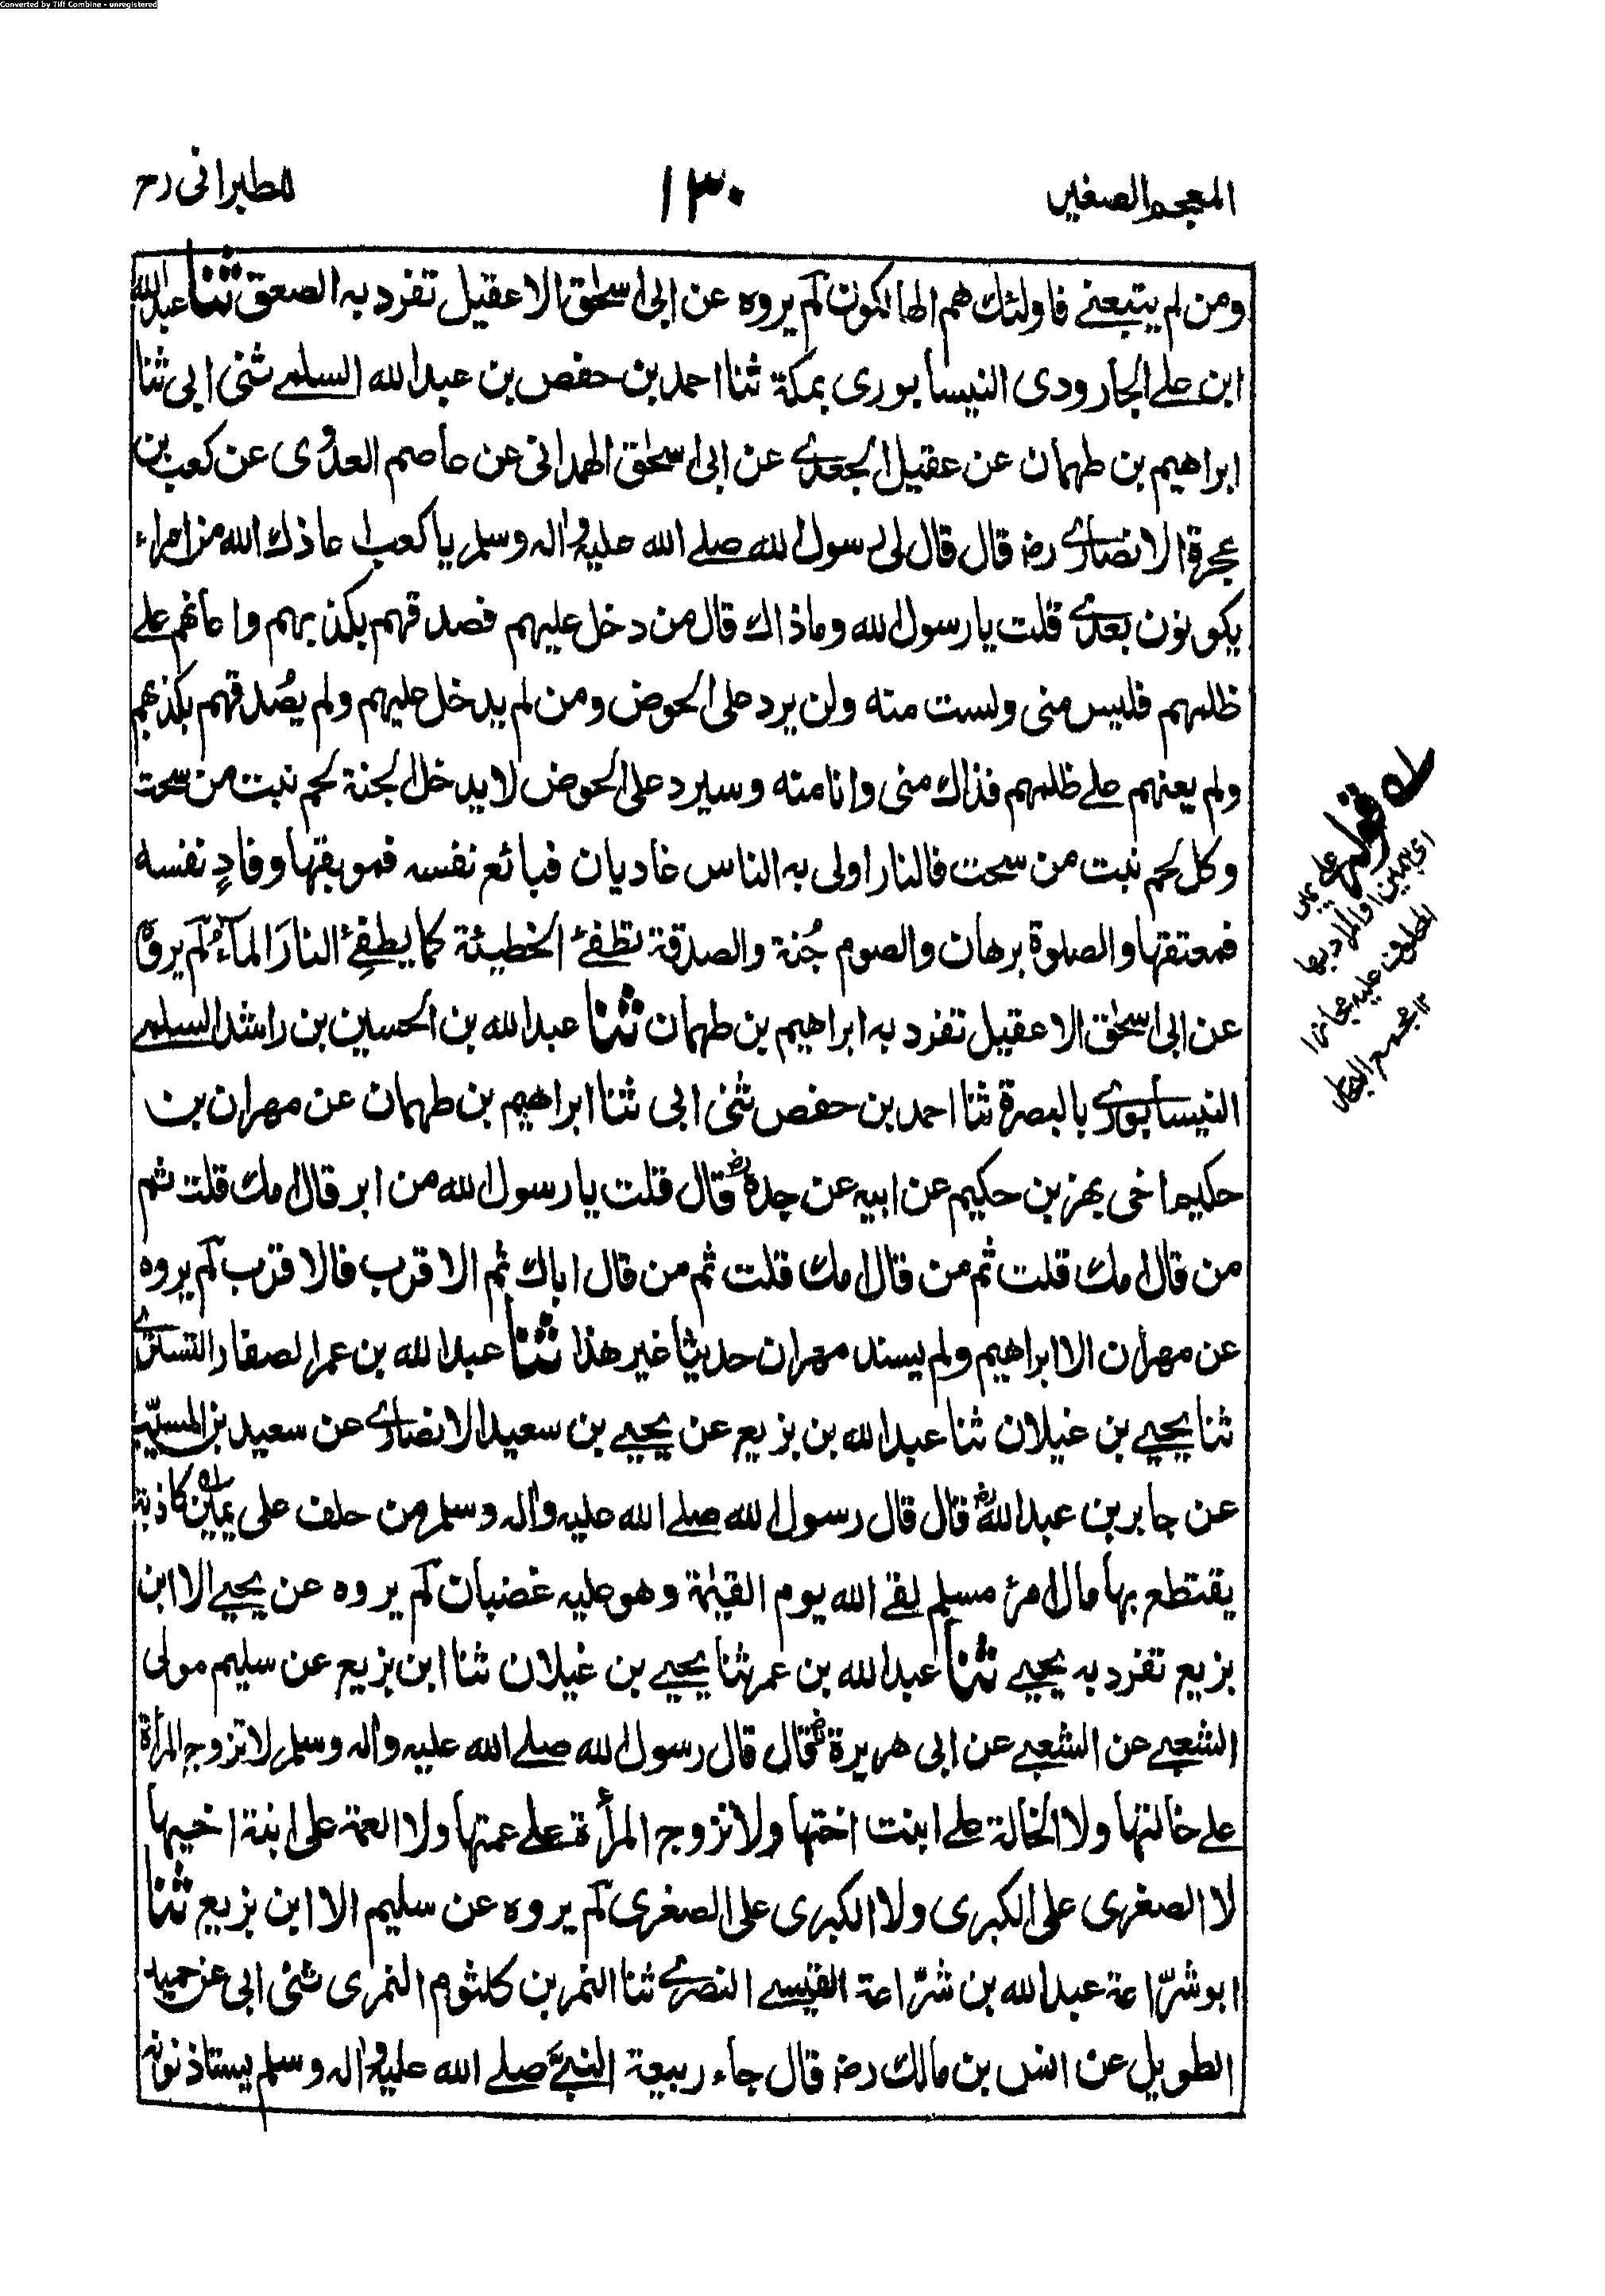 Converted by Tiff Combine - unregistered
المعجم الصغير ١٣٠ للطبرانی رح
ومن لم يتبعنے فاولئك هم الهالكون لم يروه عن ابی اسحٰق الا عقيل تفرد به الصعق ثنا عبد الله
ابن علے الجارودی النيسابوری بمكة ثنا احمد بن حفص بن عبد الله السلمے ثنی ابی ثنا
ابراهيم بن طهمان عن عقيل الجعدے عن ابی اسحٰق الهمدانی عن عاصم العدوی عن كعب بن
عجرة الانصارے رضہ قال قال لی رسول الله صلے الله عليه واٰله وسلم يا كعب اعاذك الله من امراء
يكونون بعدے قلت يا رسول الله وما ذاك قال من دخل عليهم فصدقهم بكذبهم واعانهم علے
ظلمهم فليس منی ولست منه ولن يرد علی الحوض ومن لم يدخل عليهم ولم يصدقهم بكذبهم
ولم يعنهم علے ظلمهم فذاك منی وانا منه وسيرد علی الحوض لا يدخل الجنة لحم نبت من سحت
وكل لحم نبت من سحت فالنار اولی به الناس غاديان فبائع نفسه فموبقها وفادٍ نفسه
فمعتقها والصلوة برهان والصوم جُنة والصدقة تطفئ الخطيئة كما يطفِئ النارَ الماءُ لم يروه
عن ابی اسحٰق الا عقيل تفرد به ابراهيم بن طهمان ثنا عبد الله بن الحسين بن راشد السلمے
النيسابورے بالبصرة ثنا احمد بن حفص ثنی ابی ثنا ابراهيم بن طهمان عن مهران بن
حكيم اخی بهز بن حكيم عن ابيه عن جده رض قال قلت يا رسول الله من ابر قال امك قلت ثم
من قال امك قلت ثم من قال امك قلت ثم من قال اباك ثم الاقرب فالاقرب لم يروه
عن مهران الا ابراهيم ولم يسند مهران حديثا غير هذا ثنا عبد الله بن عمر الصفار التسترے
ثنا يحيے بن غيلان ثنا عبد الله بن بزيع عن يحيے بن سعيد الانصارے عن سعيد بن المسيّب
عن جابر بن عبد الله رض قال قال رسول الله صلے الله عليه واٰله وسلم من حلف علی يمين كاذبة
يقتطع بها مال امرئ مسلم لقے الله يوم القيٰمة وهو عليه غضبان لم يروه عن يحيے الا ابن
بزيع تفرد به يحيے ثنا عبد الله بن عمر ثنا يحيے بن غيلان ثنا ابن بزيع عن سليم مولی
الشعبے عن الشعبے عن ابی هريرة رض قال قال رسول الله صلے الله عليه واٰله وسلم لا تزوج المرأة
علے خالتها ولا الخالة علے ابنت اختها ولا تزوج المرأة علے عمتها ولا العمة علی ابنة اخيها
لا الصغری علی الكبری ولا الكبری علی الصغری لم يروه عن سليم الا ابن بزيع ثنا
ابو شرّاعة عبد الله بن شرّاعة القيسے النصرے ثنا النمر بن كلثوم النمری ثنی ابی عن حميد
الطويل عن انس بن مالك رضہ قال جاء ربيعة النبیَّ صلے الله عليه واٰله وسلم يستاذنونه
له قوله علی يمين
ای بيمين او المراد بها
المحلوف عليه مجازا
١٢ مجمع البحار